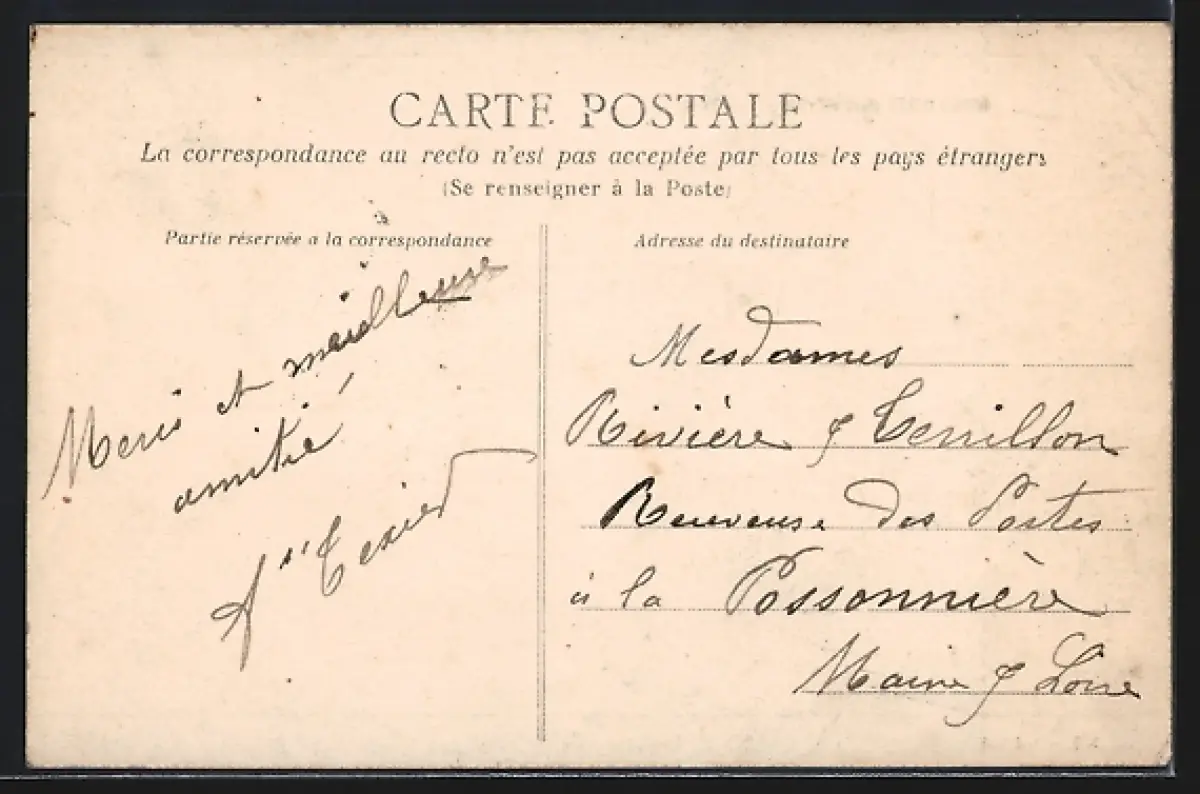 CARTE POSTALE
La correspondance au recto n'est pas acceptée par tous les pays étrangers
(Se renseigner à la Poste)
Partie réservée à la correspondance
Merci et meilleuse
amitié
Texier
Adresse du destinataire
Mesdames
Rivière &
Receveuse des Postes
à la Possonnière
Maine & Loire